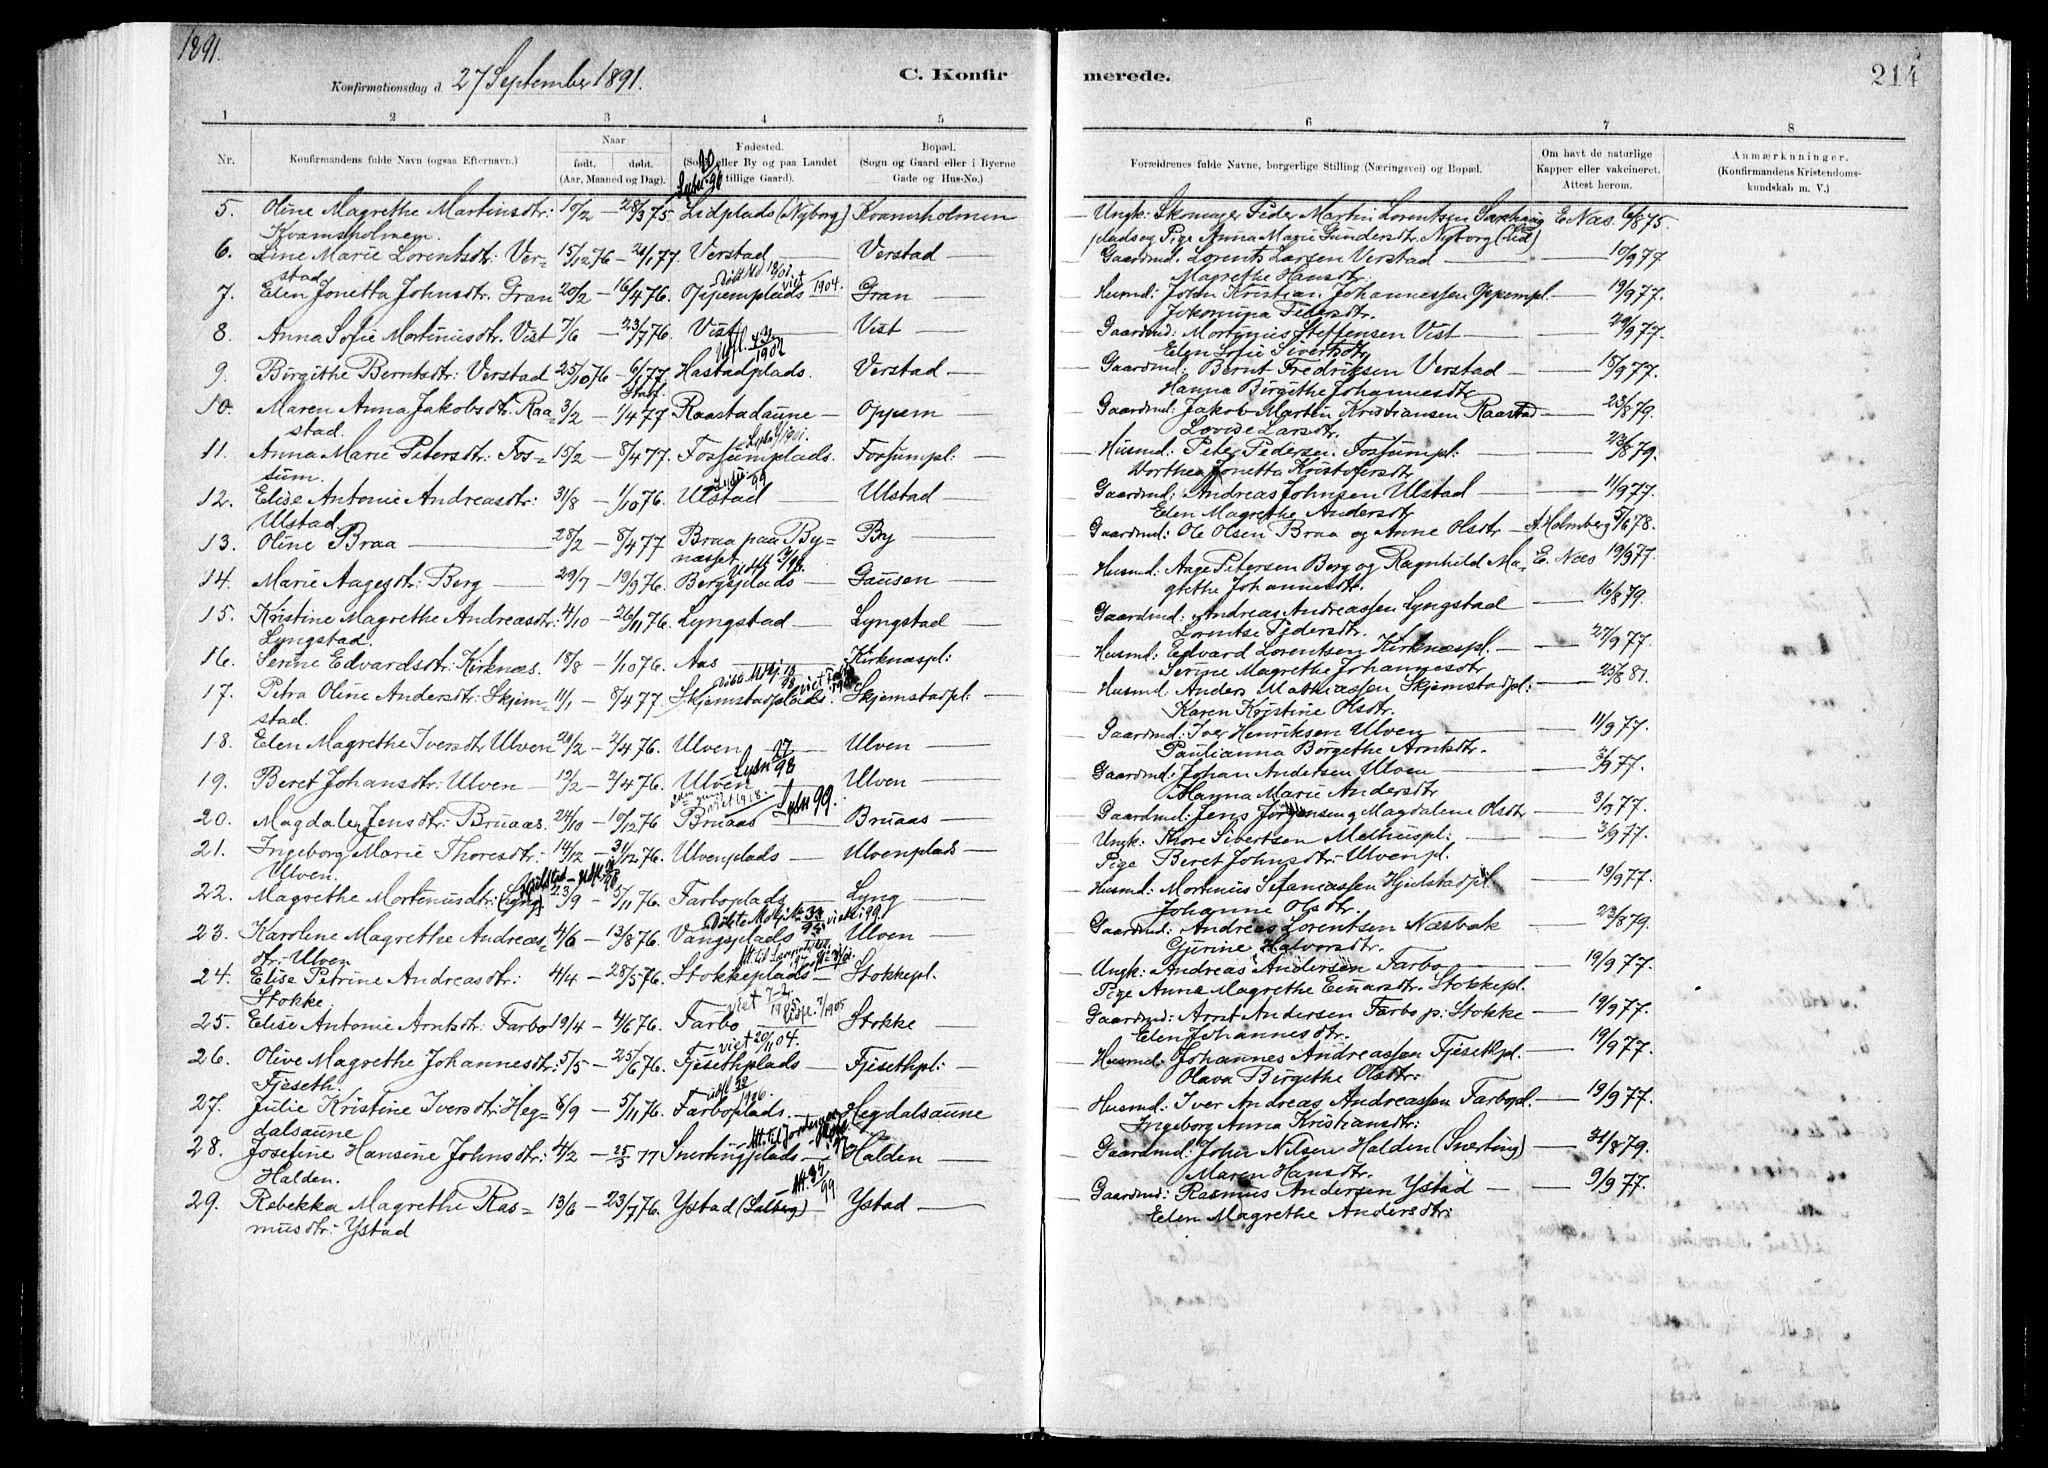 1891.
Konfirmationsdag d. 27 September 1891.
C. Konfirmerede.
214
1 2 3 4 5 6 7 8
Nr. Konfirmandens fulde Navn (ogsaa Efternavn.) Naar født. døbt. (Aar, Maaned og Dag). Fødested. (Sogn eller By og paa Landet tillige Gaard). Bopæl. (Sogn og Gaard eller i Byerne Gade og Hus-No.) Forældrenes fulde Navne, borgerlige Stilling (Næringsvei) og Bopæl. Om havt de naturlige Kapper eller vakcineret. Attest herom. Anmærkninger. (Konfirmandens Kristendomskundskab m. V.)
5. Oline Magrethe Martinsdtr: 10/2 – 28/3 75. Lidplads (Nyborg) Kvamsholmen — Ungk: Skomager Peder Martin Lorentsen Saxhaug E. Næs 6/8 75.
Kvamsholmen. pladsog Pige Anna Marie Gundersdtr. Nyborg (Lid)
6. Line Marie Lorentsdtr: Ver= 15/12 76 – 21/1 77 Verstad — Verstad — Gaardmd: Lorents Larsen Verstad — 10/9 77
stad Magrethe Hansdtr.
7. Elen Jonetta Johnsdtr. Gran 20/2 – 16/4 76. Oppemplads 1904. Gran — Husmd: John Kristian Johannessen Oppempl. — 19/9 77.
Jokomina Pedersdtr.
8. Anna Sofie Mortinusdtr. Vist 7/6 – 23/7 76. Vist — Vist — Gaardmd: Mortinus Steffensen Vist — 29/9 77.
Elen Sofie Sivertsdtr
9. Birgithe Berntsdtr: Verstad 25/10 76 – 6/1 77 Hastadplads. Verstad — Gaardmd: Bernt Fredriksen Verstad — 18/9 77.
Hanna Birgithe Johannesdtr
10. Maren Anna Jakobsdtr: Raa= 3/2 – 1/4 77 Raastadaune — Oppem — Gaardmd: Jakob Martin Kristiansen Raastad — 23/8 79.
stad. Lovise Larsdtr.
11. Anna Marie Petersdtr: Fos= 15/2 – 8/4 77. Fossumplads. Fossumpl: — Husmd: Peter Pedersen Fossumpl: — 23/8 79.
sum. Dorthea Jonetta Kristofersdtr
12. Elise Antonie Andreasdtr: 31/8 – 1/10 76. Ulstad — Ulstad — Gaardmd: Andreas Johnsen Ulstad — 11/9 77.
Ulstad. Elen Magrethe Andersdtr
13. Oline Braa — 28/2 – 8/4 77 Braa paa By= By — Gaardmd: Ole Olsen Braa og Anne Olsdtr — A. Holmberg 5/6 78.
næsset
14. Marie Aagesdtr: Berg — 29/7 – 19/9 76. Bergsplads — Gausen — Husmd: Aage Petersen Berg og Ragnhild Ma= E. Næs 19/9 77.
grethe Johannesdtr.
15. Kristine Magrethe Andreasdtr: 4/10 – 26/11 76. Lyngstad — Lyngstad — Gaardmd: Andreas Andreassen Lyngstad — 16/8 79.
Lyngstad. Lorentse Pedersdtr.
16. Serine Edvardsdtr: Kirknæs. 18/8 – 1/10 76. Aas — Kirknæspl: Husmd: Edvard Lorentsen Kirknæspl. — 27/9 77.
Serine Magrethe Johannesdtr
17. Petra Oline Andersdtr: Skjem= 11/1 – 8/4 77. Skjemstadplads. Skjemstadpl: — Husmd: Anders Mathiassen Skjemstadpl: — 25/8 81.
stad. Karen Kristine Olsdtr.
18. Elen Magrethe Iversdtr Ulven 29/2 – 2/4 76. Ulven — Ulven — Gaardmd: Iver Henriksen Ulven — 11/9 77.
Paulianna Birgethe Arntsdtr.
19. Beret Johansdtr: Ulven — 12/2 – 2/4 76. Ulven Lysn 27/98 Ulven — Gaardmd: Johan Andersen Ulven — 3/9 77.
Hanna Marie Andersdtr
20. Magdalen Jensdtr: Bruaas. 24/10 – 10/12 76 Bruaas — Lysn 99. Bruaas — Gaardmd: Jens Jørgensen og Magdalene Olsdtr — 3/9 77.
21. Ingeborg Marie Thoresdtr: 14/12 – 31/12 76. Ulvenplads — Ulvenplads — Ungk: Thore Sivertsen Melhuspl: — 3/9 77.
Ulven. Pige Beret Johnsdtr: Ulvenpl.
22. Magrethe Mortinusdtr: (Lyng) 23/9 – 5/11 76. Farboplads — Lyng — Husmd: Mortinus Stefanassen Hjulstadpl. 19/9 77.
Johanne Olsdtr.
23. Karoline Magrethe Andreas= 4/6 – 13/8 76. Vangsplads Ulven — Gaardmd: Andreas Lorentsen Næsbak 23/8 79.
dtr: Ulven Gjurine Halvorsdtr.
24. Elise Petrine Andreasdtr: 4/4 – 28/5 76. Stokkeplads — Stokkepl. Ungk: Andreas Andersen Farbo — 19/9 77.
Stokke. Pige Anna Magrethe Einarsdtr. Stokkepl.
25. Elise Antonie Arntsdtr: Farbo 19/4 – 4/6 76. Farbo — Stokke — Gaardmd: Arnt Andersen Farbo p: Stokke — 19/9 77.
Elen Johannesdtr.
viet 20/11 04.
26. Olive Magrethe Johannesdtr: 5/5 – 25/6 76. Fjesethplads — Fjesethpl: — Husmd: Johannes Andreassen Fjesethpl. — 19/9 77.
Fjeseth. Olava Birgethe Olsdtr:
27. Julie Kristine Iversdtr: Heg= 6/9 – 5/11 76. Farboplads. — Hegdalsaune Husmd: Iver Andreas Andreassen Farbopl. — 19/9 77.
dalsaune Ingeborg Anna Kristiansdtr:
28. Josefine Hansine Johnsdtr: 4/2 – 25/3 77 Snertingplads — Halden — Gaardmd: John Nilsen Halden (Snerting) — 31/8 79.
Halden. Maren Hansdtr.
29. Rebekka Magrethe Ras= 13/6 – 23/7 76. Ystad (Salberg) — Ystad — Gaardmd: Rasmus Andersen Ystad — 9/9 77.
musdtr: Ystad Elen Magrethe Andersdtr: